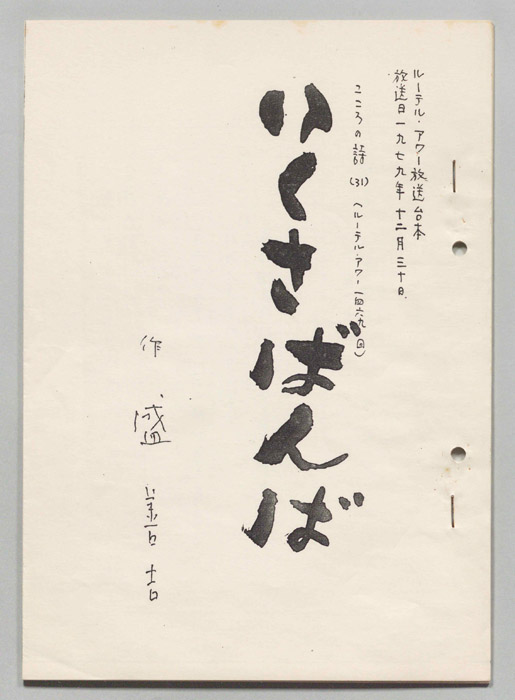 ルーテル・アワー放送台本
放送日一九七九年十二月三十日
こころの詩 (31) (ルーテル・アワー一四六九回)
いくさばんば
作 盛善吉